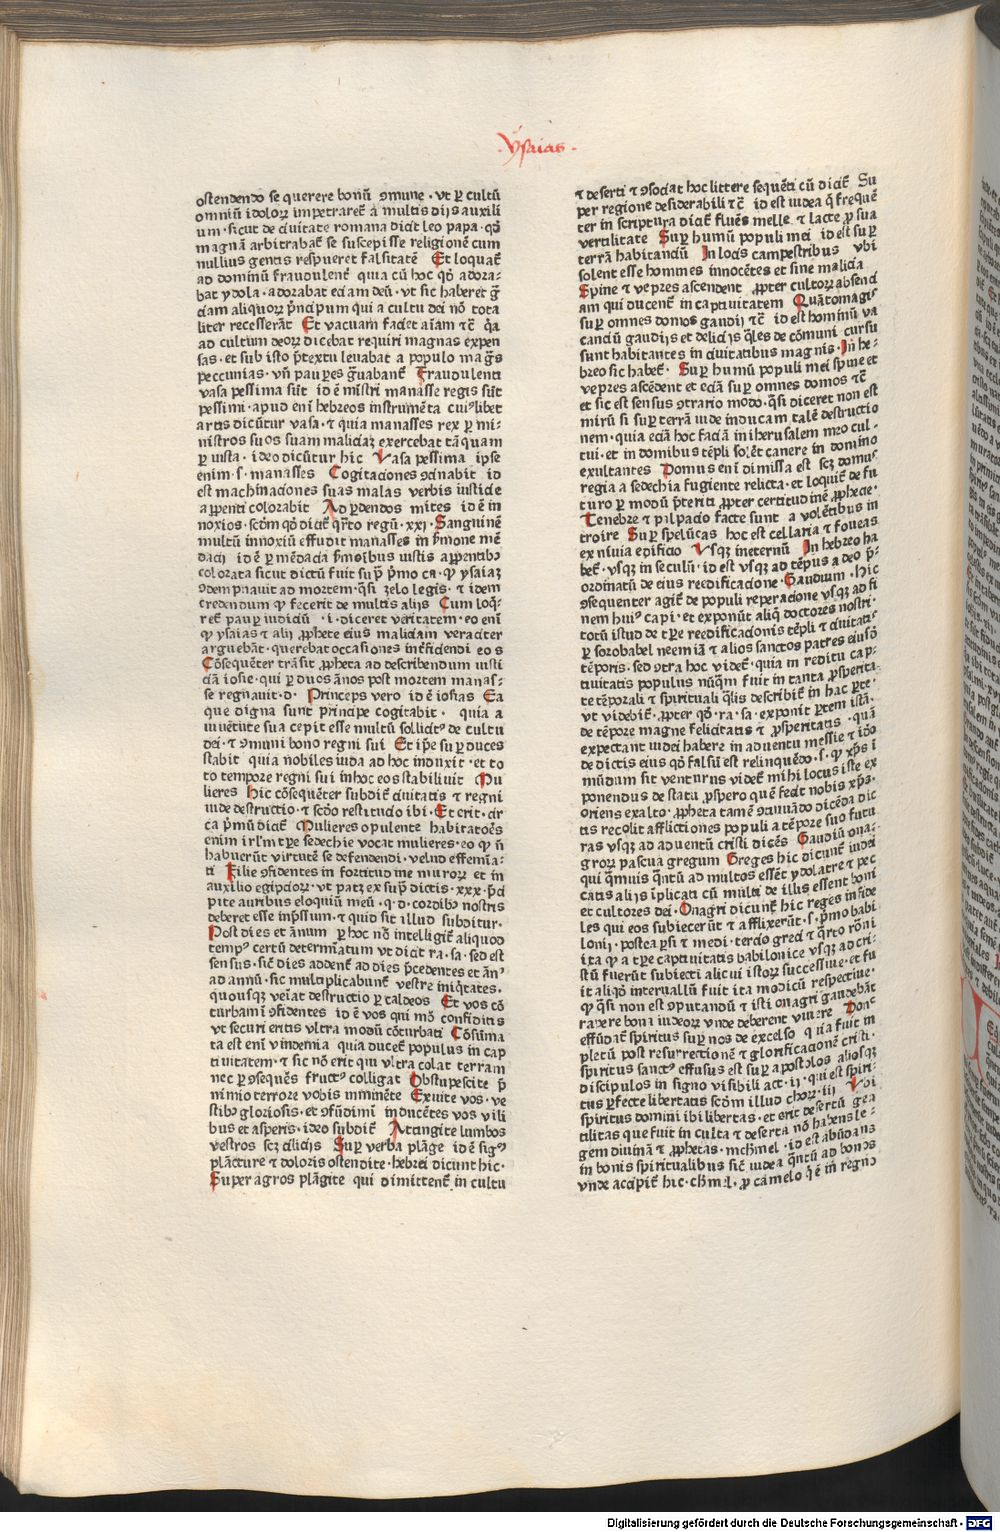 ·Ysaias·
ostendendo se querere bonū ꝯmune · vt ꝑ cultū
omniū idoloꝝ impetraret̄ a multis dijs auxili
um · sicut de ciuitate romana dicit leo papa · qō
magnā arbitrabat̄ se suscepisse religionē cum
nullius gentis respueret falsitatē Et loquat̄
ad dominū fraudulent̄ quia cū hoc qō adora⸗
bat ydola · adorabat eciam deū · vt sic haberet ḡ
ciam aliquoꝝ pͥncipum qui a cultu dei nō tota
liter recesserāt Et vacuam faciet aīam ⁊c̄ q̄a
ad cultum deoꝝ dicebat requiri magnas expen
sas · et sub isto p̄textu leuabat a populo maḡs
peccunias · vn̄ paupes ḡuabant̄ Fraudulenti
vasa pessima sūt id ē mīstri manasse regis sūt
pessimi · apud enī hebreos instrumēta cuiꝰlibet
artis dicūtur vasa · ⁊ quia manasses rex ꝑ mi⸗
nistros suos suam maliciaꝫ exercebat tāquam
ꝑ uasa · ideo dicūtur hic Vasa pessima ipse
enim · s · manasses Cogitaciones ꝯcinabit id
est machinaciones suas malas verbis iusticie
apparenti colorabit Ad ꝑdendos mites id ē in
noxios · scdm̄ qō dicit̄ qͣrto regū · xxj · Sanguinē
multū innoxiū effudit manasses in s̄mone mē
dacij id ē ꝑ mēdacia s̄moībus iustis apparentibꝫ
colorata sicut dictū fuit supͣ pͥmo ca · ꝙ ysaiaꝫ
ꝯdempnauit ad mortem · qͣsi zelo legis · ⁊ idem
credendum ꝙ fecerit de multis alijs Cum loq̄⸗
ret̄ paup iudiciū · i · diceret veritatem · eo enī
ꝙ ysaias ⁊ alij ꝓphete eius maliciam veraciter
arguebāt · querebat occasiones int̄ficiendi eos
Cōsequēter trāsit ꝓpheta ad describendum iusti
ciā iosie · qui ꝑ duos ānos post mortem manas⸗
se regnauit · d · Princeps vero id ē iosias Ea
que digna sunt principe cogitabit · quia a
iuuētute sua cepit esse multū sollicitꝰ de cultu
dei · ⁊ ꝯmuni bono regni sui Et ip̄e suꝑ duces
stabit quia nobiles iuda ad hoc induxit · et to
to tempore regni sui in hoc eos stabiliuit Mu
lieres Hic cōsequēter subdit̄ ciuitatis ⁊ regni
iude destructio · ⁊ scdo restitucio ibi · Et erit · cir
ca pͥmū dicit̄ Mulieres opulente habitatoēs
enim irl̄m tꝑe sedechie vocat mulieres · eo ꝙ n̄
habuerūt virtutē se defendendi · velud effemīa⸗
ti Filie ꝯfidentes in fortitudine muroꝝ et in
auxilio egipcioꝝ · vt patꝫ ex supͣ dictis · xxx · Pͥci
pite auribus eloquiū meū · q · d · cordibꝫ nostris
deberet esse inp̄ssum · ⁊ quid sit illud subditur ·
Post dies et ānum ꝑ hoc nō intelligit̄ aliquod
tempꝰ certū determīatum vt dicit ra · sa · sed est
sensus · sic̄ dies addent̄ ad dies p̄cedentes et ānꝰ
ad annū · sic multiplicabunt̄ vestre iniqͥtates ·
quousqꝫ veīat destructio ꝑ caldeos Et vos cō
turbamī ꝯfidentes id ē vos qui mō confiditis
vt securi eritis vltra modū cōturbati Cōsūma
ta est enī vindemia quia ducet̄ populus in cap
tiuitatem · ⁊ sic nō erit qui vltra colat terram
nec ꝑ ꝯsequēs fructꝰ colligat Obstupescite p̄
nimio terrore vobis imminēte Exuite vos · ve
stibꝫ gloriosis · et ꝯfūdimī inducētes vos vili
bus et asperis · ideo subdit̄ Accingite lumbos
vestros scꝫ cilicijs Suꝑ verba plāge id ē sigꝰ
plācture ⁊ doloris ostendite · hebrei dicunt hic ·
Super agros plāgite qui dimittent̄ in cultu
⁊ deserti ⁊ ꝯsociat hoc littere sequēti cū dicit̄ Su
per regione desiderabili ⁊c̄ id est iudea q̄ frequē
ter in scriptura dicit̄ fluēs melle ⁊ lacte ꝓ sua
vertilitate Suꝑ humū populi mei id est suꝑ
terrā habitandū In locis campestribus vbi
solent esse hommes innocētes et sine malicia
Spine ⁊ vepres ascendent ꝓpter cultoꝝ absenci
am qui ducent̄ in captiuitatem Quātomagꝭ
suꝑ omnes domos gaudij ⁊c̄ id est hominū va
canciū gaudijs et delicijs qͣles de cōmuni cursu
sunt habitantes in ciuitatibus magnis · In he⸗
breo sic habet̄ · Suꝑ humū populi mei spine et
vepres ascēdent et eciā suꝑ omnes domos ⁊c̄
et sic est sensus ꝯtrario modo · qͣsi diceret non est
mirū si suꝑ terrā iude inducam talē destructio
nem · quia eciā hoc faciā in iherusalem mͦdo cul⸗
tui · et in domibus tēpli solēt canere in domino
exultantes Domus enī dimissa est scꝫ domus
regia a sedechia fugiente relicta · et loquit̄ de fu
turo ꝑ modū p̄teriti ꝓpter certitudinē ꝓphecie ·
Tenebre ⁊ palpacio facte sunt a volētibus in
troire Suꝑ spelūcas hoc est cellaria ⁊ foueas
ex ruuia edificio Vsqꝫ in eternū In hebreo ha
bet̄ · vsqꝫ in seculū · id est vsqꝫ ad tēpus a deo p̄⸗
ordinatū de eius reedificacione · Gaudium · Hic
ꝯsequenter agit̄ de populi reperacione vsqꝫ ad fi
nem huiꝰ capi · et exponūt aliqͥ doctores nostri ·
totū istud de tꝑe reedificacionis tēpli ⁊ ciuitatꝭ
ꝑ sorobabel neemiā ⁊ alios sanctos patres eiusdē
tēporis · sed ꝯtra hoc videt̄ · quia in reditu cap⸗
tiuitatis populus nūqͣm fuit in tanta ꝓsperita⸗
te tēporali ⁊ spirituali qͣlis describit̄ in hac ꝑte ·
vt videbit̄ · ꝓpter qō · ra · sa · exponit ꝑtem istā ·
de tēpore magne felicitatis ⁊ ꝓsperitatis · quā
expectant iudei habere in aduentu messie ⁊ ideo
de dictis eius qō falsū est relinquēdo · s · ꝙ xp̄s ī
mūdum sit venturus videt̄ mihi locus iste ex
ponendus de statu ꝓspero quē fecit nobis xp̄s ·
Oriens exalto · ꝓpheta tamē ꝯtinuādo dicēda dic
tis recolit afflictiones populi a tēpore suo futu
ras vsqꝫ ad aduentū cristi dicēs Gaudiū ona⸗
groꝝ pascua gregum Greges hic dicunt̄ iudei
qui qͣmuis qͣntū ad multos essēt ydolatre ⁊ pec
cātis alijs īplicati cū multi de illis essent boni
et cultores dei · Onagri dicunt̄ hic reges infide
les qui eos subiecerūt ⁊ afflixerūt · s · pͥmo babi
lonij · postea ꝑsi ⁊ medi · tercio greci ⁊ qͣrto rōni
ita ꝙ a tꝑe captiuitatis babilonice vsqꝫ ad cri⸗
stū fuerūt subiecti alicui istoꝝ successiue · et fu
it aliqͦ interuallū fuit ita modicū respectiue ·
ꝙ qͣsi non est ꝯputandū ⁊ isti onagri gaudebāt
rapere bona iudeoꝝ vnde deberent viuere Donec
effūdat̄ spiritus suꝑ nos de excelso quia fuit im
pletū post resurrectionē ⁊ glorificacionē cristi ·
spiritus sanctꝰ effusus est suꝑ apostolos aliosqꝫ
discipulos in signo visibili act · ij · qui est spiri⸗
tus ꝑfecte libertatis scdm illud · choꝝ · iij Vbi
spiritus domini ibi libertas · et erit desertū gea
tilitas que fuit inculta ⁊ deserta nō habens le⸗
gem diuinā ⁊ ꝓphetas · mchmel · id est abūdans
in bonis spiritualibus sic̄ iudea qͣntū ad bonos
vnde accipit̄ hic · chmel · ꝓ camelo q̄ ē in regno
Digitalisierung gefördert durch die Deutsche Forschungsgemeinschaft - DFG